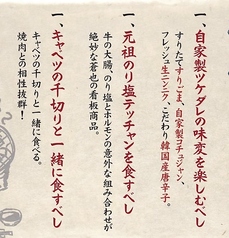 一、自家製ツケダレの味変を楽しむべし
すりたてすりごま、自家製コチュジャン、
フレッシュ生ニンニク、こだわり韓国産唐辛子。
一、元祖のり塩テッチャンを食すべし
牛の大腸、のり塩とホルモンの意外な組み合わせが
絶妙な蒼也の看板商品。
一、キャベツの千切りと一緒に食すべし
キャベツの千切りと一緒に食べる。
焼肉との相性抜群！